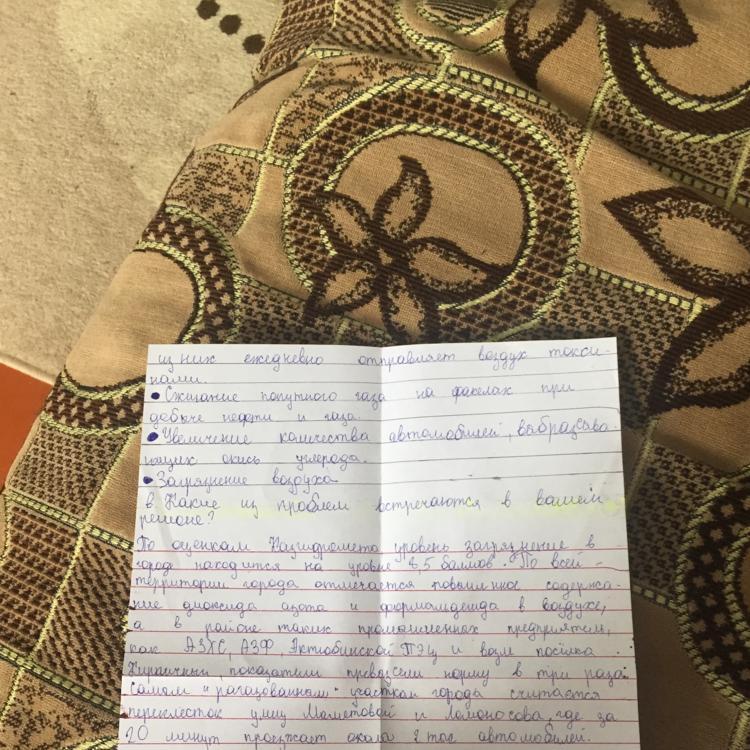 из них ежедневно отправляет воздух токси-
нами.
• Сжигание попутного газа на факелах при
добыче нефти и газа.
• Увеличение каличества автомобилей, выбрасыва-
ющих окись углерода.
• Загрязнение воздуха
в. Какие из проблем встречаются в вашем
регионе?
По оценкам Казгидромета уровень загрязнение в
городе находится на уровне 6,5 баллов. По всей
территории города отмечается повышенное содержа-
ние диоксида азота и формальдегида в воздухе,
а в районе таких промышленных предприятий,
как АЗХС, АЗФ, Актюбинской ТЭЦ и возле посёлка
Кирпичный, показатели превысели норму в три раза.
Самом "загазованным" участком города считается
перекресток улиц Маметовой и Ломоносова, где за
20 минут проезжает около 2 тыс автомобилей.